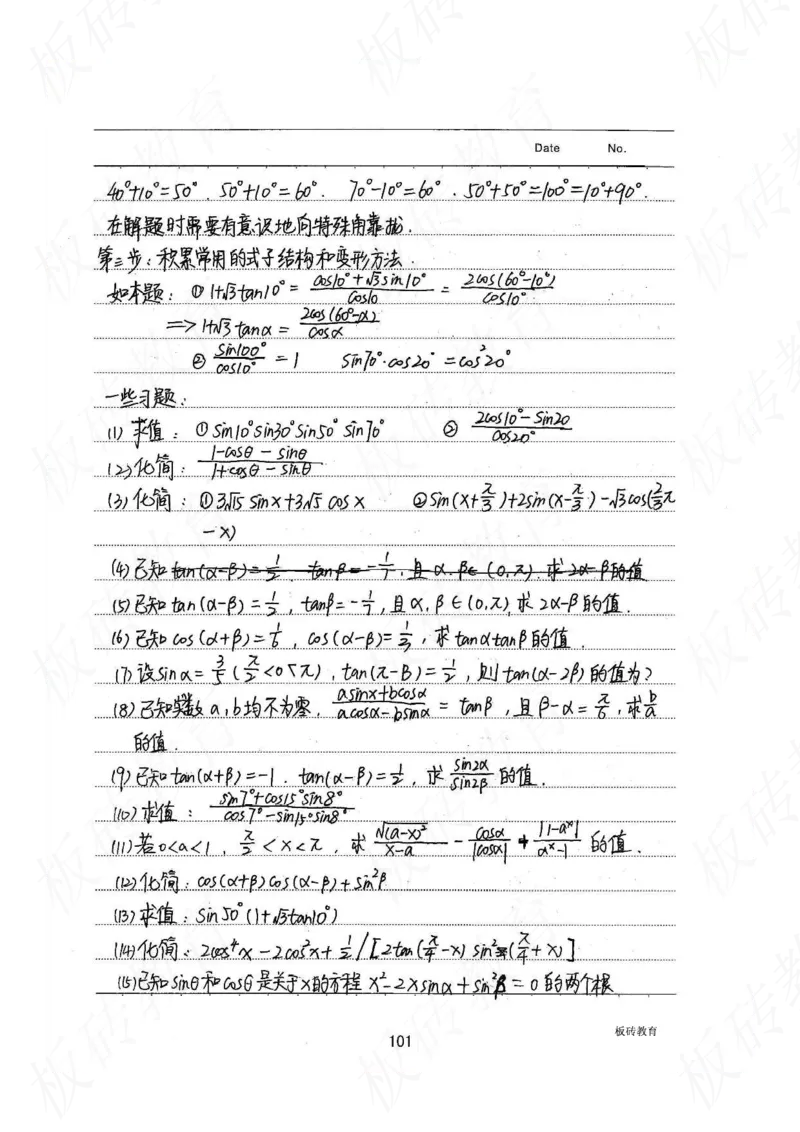 Date No.
40°+10°=50°. 50°+10°=60°. 70°-10°=60°. 50°+50°=100°=10°+90°.
在解题时需要有意识地向特殊角靠拢.
第三步:积累常用的式子结构和变形方法.
如本题: ① 1+√3tan10° = (cos10°+√3sin10°)/cos10 = 2cos(60°-10°)/cos10°
=> 1+√3tanα = 2cos(60°-α)/cosα
② sin100°/cos10° = 1 sin70°·cos20° = cos²20°
一些习题:
(1) 求值: ① sin10°sin30°sin50°sin70° ② (2cos10°-sin20)/cos20°
(2) 化简: (1-cosθ-sinθ)/(1+cosθ-sinθ)
(3) 化简: ① 3√15 sinx+3√5 cosx ② sin(x+π/3)+2sin(x-π/3)-√3cos(2/3π
-x)
(4) 已知tan(α-β)=1/2, tanβ=-1/7, 且α,β∈(0,π), 求2α-β的值
(5) 已知tan(α-β)=1/2, tanβ=-1/7, 且α,β∈(0,π),求2α-β的值.
(6) 已知cos(α+β)=1/5, cos(α-β)=1/3, 求tanαtanβ的值.
(7) 设sinα=3/5(π/2<α<π), tan(π-β)=1/2, 则tan(α-2β)的值为?
(8) 已知实数a,b均不为零, (asinx+bcosα)/(acosα-bsinα) = tanβ, 且β-α=π/6, 求b/a
的值.
(9) 已知tan(α+β)=-1, tan(α-β)=1/2, 求 sin2α/sin2β 的值.
(10) 求值: (sin7°+cos15°sin8°)/(cos7°-sin15°sin8°)
(11) 若0<a<1, π/2<x<π, 求 √(a-x)²/(x-a) - cosα/|cosx| + |1-aˣ|/(aˣ-1) 的值.
(12) 化简: cos(α+β)cos(α-β)+sin²β
(13) 求值: sin50°(1+√3tan10°)
(14) 化简: 2cos⁴x-2cos²x+1/2/[2tan(π/4-x)sin²(π/4+x)]
(15) 已知sinθ和cosθ是关于x的方程x²-2xsinα+sin²β=0的两个根
板砖教育
101